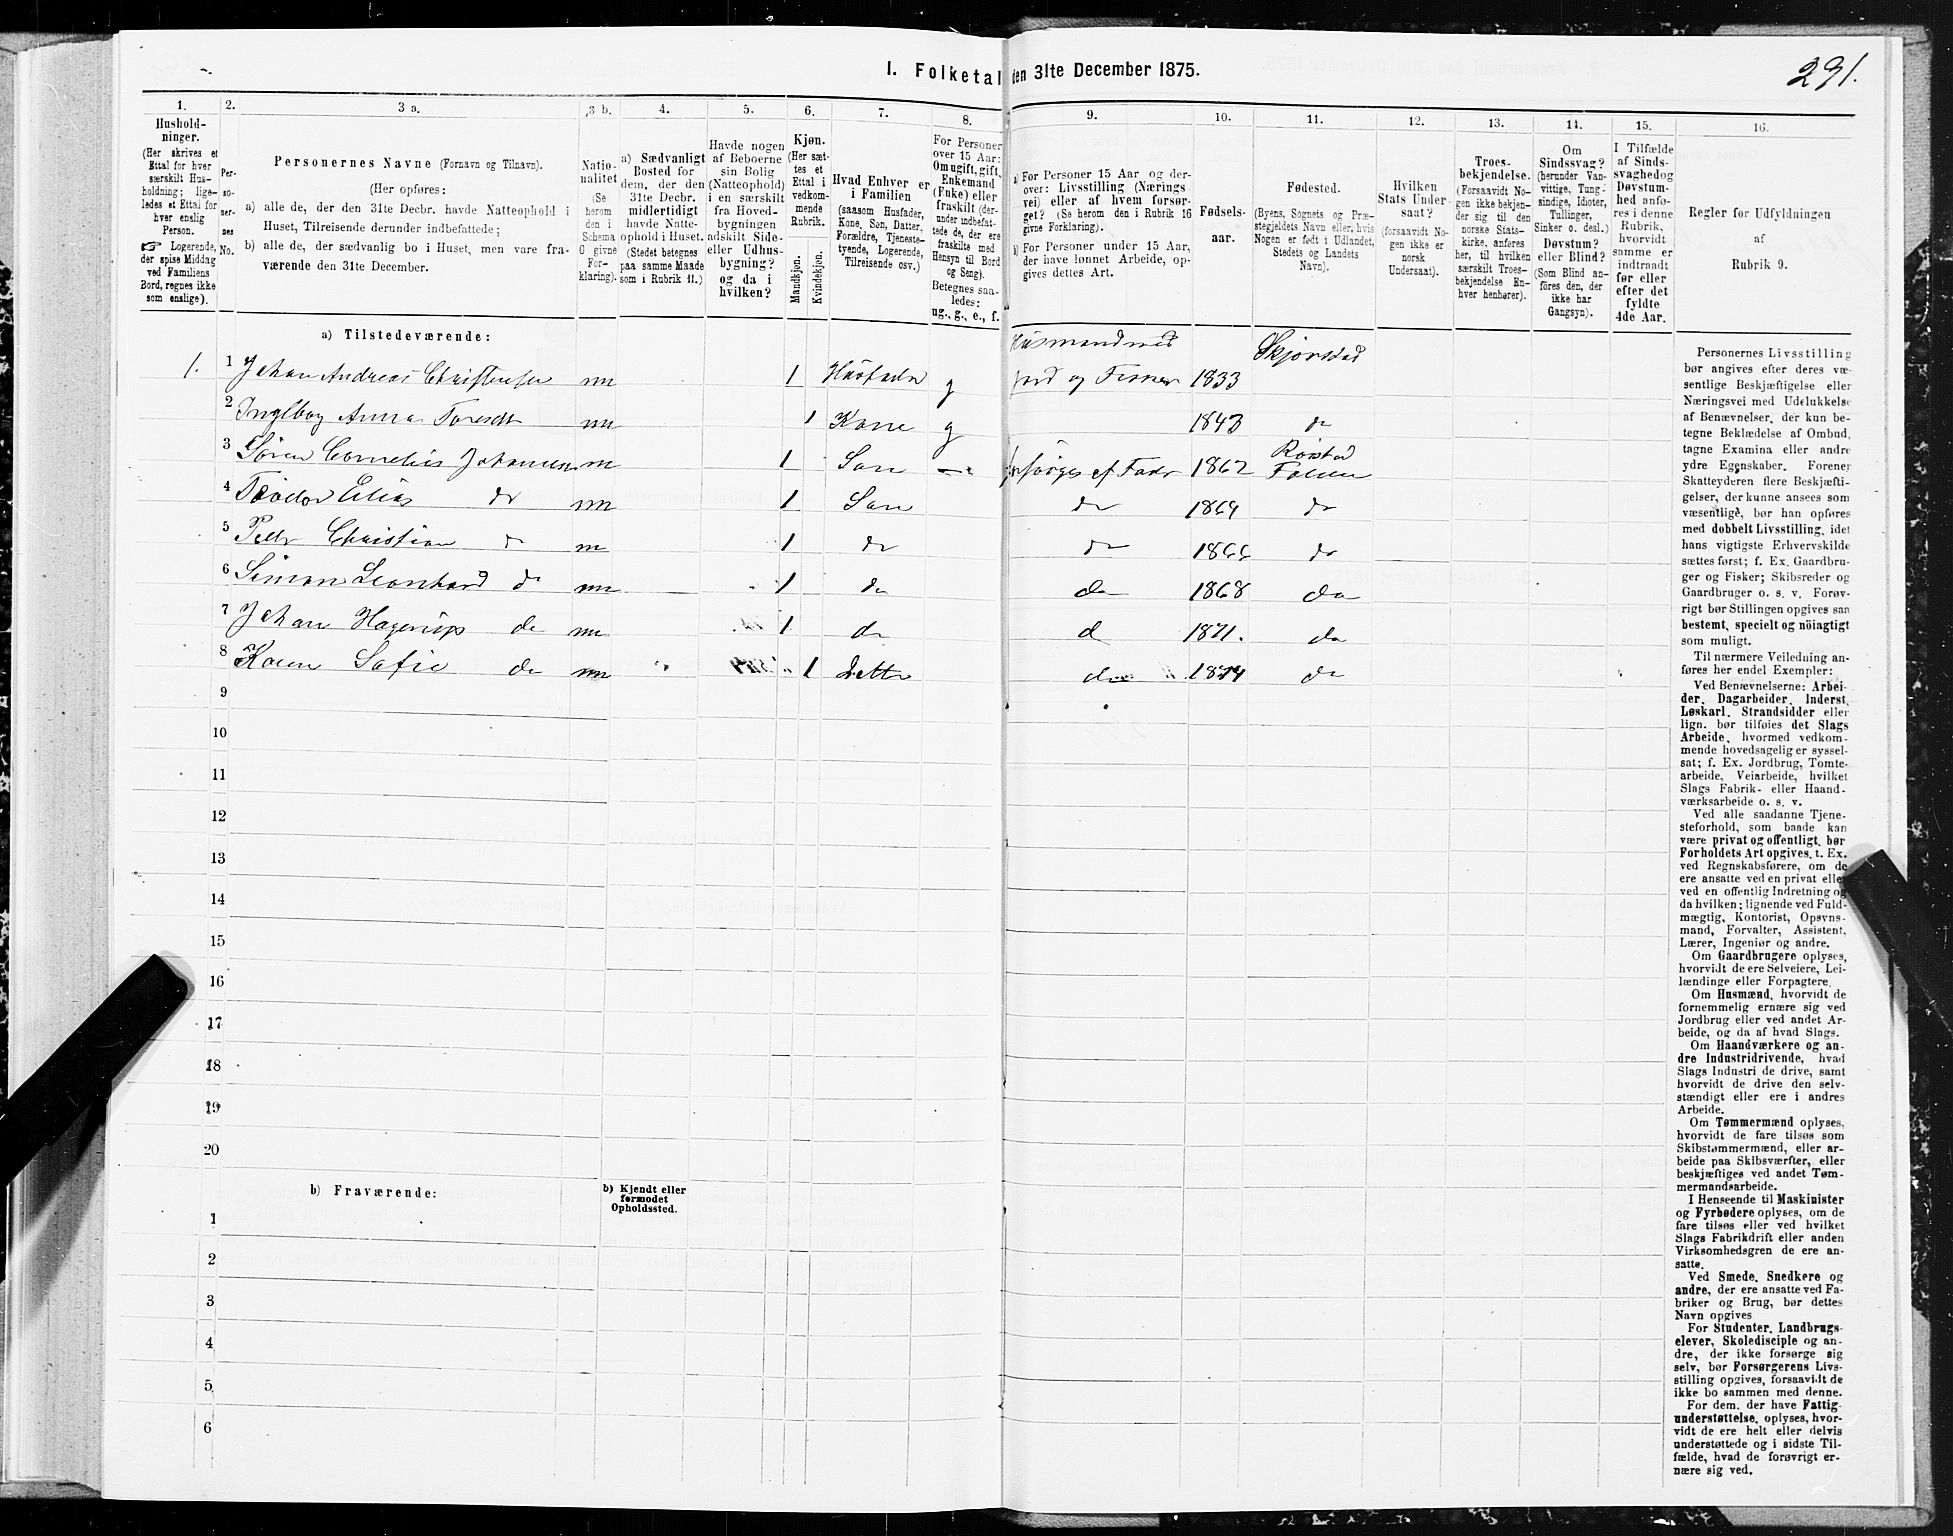 291.
I. Folketal den 31te December 1875.
1. 2. 3 a. 3 b. 4. 5. 6. 7. 8. 9. 10. 11. 12. 13. 14. 15. 16.
Hushold-
ninger.
(Her skrives et
Ettal for hver
særskilt Hus-
holdning; lige-
ledes et Ettal for
hver enslig
Person.
☞ Logerende,
der spise Middag
ved Familiens
Bord, regnes ikke
som enslige).
Per-
so-
ner-
nes
No.
Personernes Navne (Fornavn og Tilnavn).
(Her opføres:
a) alle de, der den 31te Decbr. havde Natteophold i
Huset, Tilreisende derunder indbefattede;
b) alle de, der sædvanlig bo i Huset, men vare fra-
værende den 31te December.
Natio-
nalitet
(Se
herom
den i
Schema
0 givne
For-
klaring).
a) Sædvanligt
Bosted for
dem, der den
31te Decbr.
midlertidigt
havde Natte-
ophold i Huset.
(Stedet betegnes
paa samme Maade
som i Rubrik 11.)
Havde nogen
af Beboerne
sin Bolig
(Natteophold)
i en særskilt
fra Hoved-
bygningen
adskilt Side-
eller Udhus-
bygning?
og da i
hvilken?
Kjøn.
(Her sæt-
tes et
Ettal i
vedkom-
mende
Rubrik.
Mandkjøn.
Kvindekjøn.
Hvad Enhver er
i Familien
(saasom Husfader,
Kone, Søn, Datter,
Forældre, Tjeneste-
tyende, Logerende,
Tilreisende osv.)
For Personer
over 15 Aar:
Om ugift, gift,
Enkemand
(Enke) eller
fraskilt (der-
under indbefat-
tede de, der ere
fraskilte med
Hensyn til Bord
og Seng).
Betegnes saa-
ledes:
ug., g., e., f.
a) For Personer 15 Aar og der-
over: Livsstilling (Nærings
vei) eller af hvem forsør-
get? (Se herom den i Rubrik 16
givne Forklaring).
b) For Personer under 15 Aar,
der have lønnet Arbeide, op-
gives dettes Art.
Fødsels-
aar.
Fødested.
(Byens, Sognets og Præ-
stegjeldets Navn eller, hvis
Nogen er født i Udlandet,
Stedets og Landets
Navn).
Hvilken
Stats Under-
saat?
(forsaavidt No-
gen ikke er
norsk
Undersaat).
Troes-
bekjendelse.
(Forsaavidt No-
gen ikke bekjen-
der sig til den
norske Stats-
kirke, anføres
her, til hvilken
særskilt Troes-
bekjendelse En-
hver henhører).
Om
Sindssvag?
(herunder Van-
vittige, Tung-
sindige, Idioter,
Tullinger,
Sinker o. desl.)
Døvstum?
eller Blind?
(Som Blind an-
føres den, der
ikke har
Gangsyn).
I Tilfælde
af Sinds-
svaghedog
Døvstum-
hed anfø-
res i denne
Rubrik,
hvorvidt
samme er
indtraadt
før eller
efter det
fyldte
4de Aar.
Regler for Udfyldningen
af
Rubrik 9.
a) Tilstedeværende:
Husmand med Skjerstad
1. 1 Johan Andreas Christensen nn 1 Husfader g Jord og Fisker 1833
2 Anna nn 1 Kone g 1843 do
3 Søren Cornelius Johansen n 1 Søn forsørges af Fader 1862 Rørstad
Folden
4 Elias do nn 1 Søn do 1864 do
5 Peder Christian do n 1 do do 1866 do
6 Simon Leonhard do nn 1 do do 1868 do
7 Johan Hagerup do nn 1 do d 1871. do
8 Karen Sofie do nn 1 Datter do 1874 do
9
10
11
12
13
14
15
16
17
18
19
20
b) Fraværende:
b) Kjendt eller
formodet
Opholdssted.
1
2
3
4
5
6
Personernes Livsstilling
bør angives efter deres væ-
sentlige Beskjæftigelse eller
Næringsvei med Udelukkelse
af Benævnelser, der kun be-
tegne Beklædelse af Ombud,
tagne Examina eller andre
ydre Egenskaber. Forener
Skatteyderen flere Beskjæfti-
gelser, der kunne ansees som
væsentlige, bør han opføres
med dobbelt Livsstilling, idet
hans vigtigste Erhvervskilde
sættes først; f. Ex. Gaardbru-
ger og Fisker; Skibsreder og
Gaardbruger o. s. v. Forøv-
rigt bør Stillingen opgives saa
bestemt, specielt og nöiagtigt
som muligt.
Til nærmere Veiledning an-
føres her endel Exempler:
Ved Benævnelserne: Arbei-
der, Dagarbeider, Inderst,
Løskarl, Strandsidder eller
lign. bør tilføies det Slags
Arbeide, hvormed vedkom-
mende hovedsagelig er syssel-
sat; f. Ex. Jordbrug, Tomte-
arbeide, Veiarbeide, hvilket
Slags Fabrik- eller Haand-
værksarbeide o. s. v.
Ved alle saadanne Tjene-
steforhold, som baade kan
være privat og offentligt, bør
Forholdets Art opgives, t. Ex.
ved Regnskabsførere, om de
ere ansatte ved en privat eller
ved en offentlig Indretning og
da hvilken; lignende ved Fuld-
mægtig, Kontorist, Opsyns-
mand, Forvalter, Assistent,
Lærer, Ingeniør og andre.
Om Gaardbrugere oplyses,
hvorvidt de ere Selveiere, Lei-
lændinge eller Forpagtere.
Om Husmænd, hvorvidt de
fornemmelig ernære sig ved
Jordbrug eller ved andet Ar-
beide, og da af hvad Slags.
Om Haandværkere og an-
dre Industridrivende, hvad
Slags Industri de drive, samt
hvorvidt de drive den selv-
stændigt eller ere i andres
Arbeide.
Om Tømmermænd oplyses,
hvorvidt de fare tilsøs som
Skibstømmermænd, eller ar-
beide paa Skibsværfter, eller
beskjæftiges ved andet Tøm-
mermandsarbeide.
I Henseende til Maskinister
og Fyrbødere oplyses, om de
fare tilsøs eller ved hvilket
Slags Fabrikdrift eller anden
Virksomhedsgren de ere an-
satte.
Ved Smede, Snedkere og
andre, der ere ansatte ved Fa-
briker og Brug, bør dettes
Navn opgives
For Studenter, Landbrugs-
elever, Skoledisciple og an-
dre, der ikke forsørge sig
selv, bør Forsørgerens Livs-
stilling opgives, forsaavidt de
ikke bo sammen med denne.
For dem, der have Fattig-
understøttelse, oplyses, hvor-
vidt de ere helt eller delvis
understøttede og i sidste Til-
fælde, hvad de forøvrigt er-
nære sig ved.